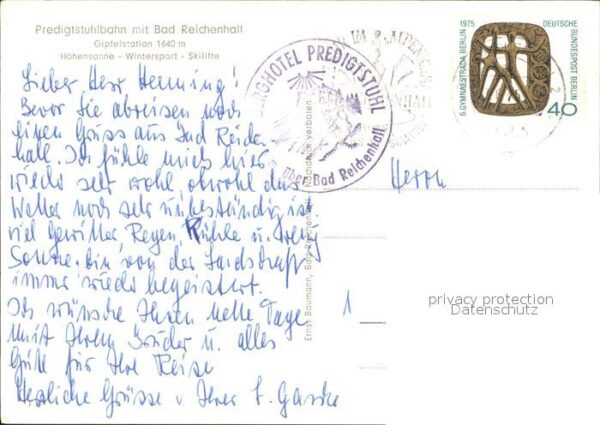 Predigtstuhlbahn mit Bad Reichenhall
Gipfelstation 1640 m
Höhensonne - Wintersport - Skilifte
Lieber Herr Henning!
Bevor Sie abreisen noch
einen Gruss aus Bad Reichen
hall. Ich fühle mich hier
wieder sehr wohl, obwohl das
Wetter noch sehr unbeständig ist
viel Gewitter, Regen, Kühle u. wenig
Sonne. bin von der Landschaft
immer wieder begeistert.
Ich wünsche Ihnen nette Tage
mit Ihrem Bruder u. alles
Gute für Ihre Reise
Herzliche Grüsse v Ihrer
BERGHOTEL PREDIGTSTUHL
über Bad Reichenhall
Ernst Baumann, Bad Reichenhall
verboten
1975
DEUTSCHE BUNDESPOST BERLIN
6. GYMNAESTRADA BERLIN
40
Herrn
1
privacy protection
Datenschutz